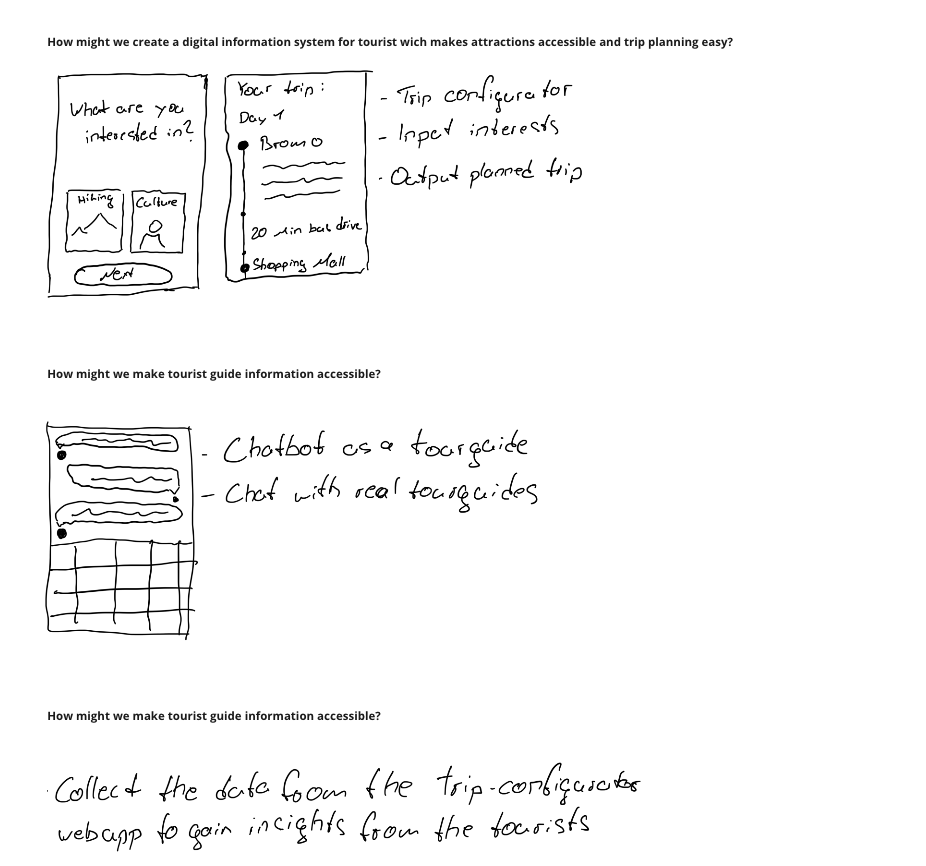 How might we create a digital information system for tourist wich makes attractions accessible and trip planning easy?
What are you
interested in?
Hiking
Culture
Next
Your trip:
Day 1
Bromo
20 Min bus drive
Shopping Mall
- Trip configurator
- Input interests
- Output planned trip
How might we make tourist guide information accessible?
- Chatbot as a tourguide
- Chat with real tourguides
How might we make tourist guide information accessible?
Collect the data from the trip-configurator
webapp to gain incights from the tourists